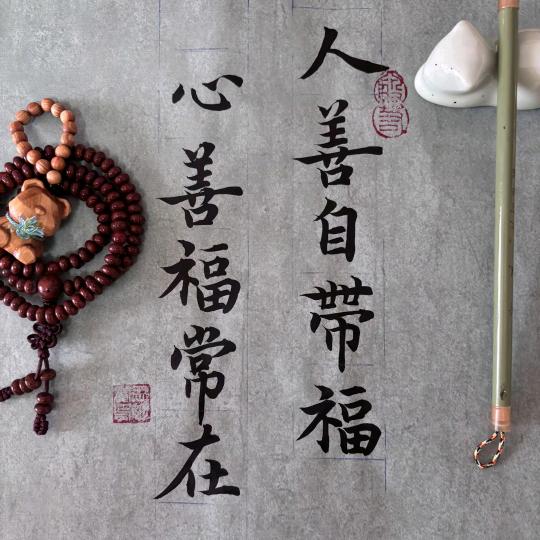 人善自帶福
心善福常在